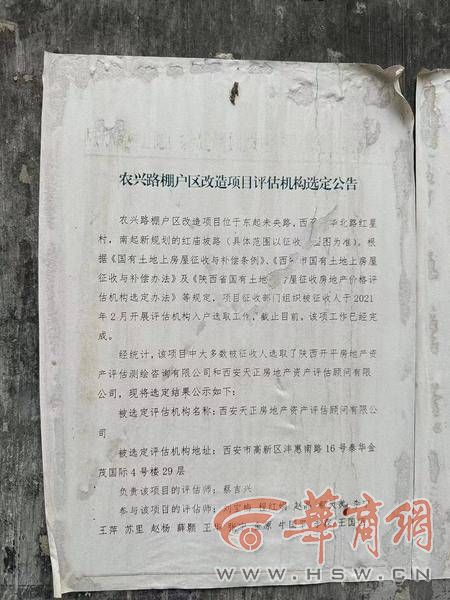 农兴路棚户区改造项目评估机构选定公告
农兴路棚户区改造项目位于东起未央路,西 华北路红星
村,南起新规划的红庙坡路(具体范围以征收 图为准)。根
据《国有土地上房屋征收与补偿条例》、《西 市国有土地上房屋
征收与补偿办法》及《陕西省国有土地 屋征收房地产价格评
估机构选定办法》等规定,项目征收部门组织被征收人于2021
年2月开展评估机构入户选取工作,截止目前,该项工作已经完
成。
经统计,该项目中大多数被征收人选取了陕西开平房地产资
产评估测绘咨询有限公司和西安天正房地产资产评估顾问有限
公司,现将选定结果公示如下:
被选定评估机构名称:西安天正房地产资产评估顾问有限公
司
被选定评估机构地址:西安市高新区沣惠南路16号泰华金
茂国际4号楼29层
负责该项目的评估师:蔡吉兴
参与该项目的评估师:刘宝梅 程红娟
王萍 苏里 赵杨 薛颢
华商网
WWW.HSW.CN